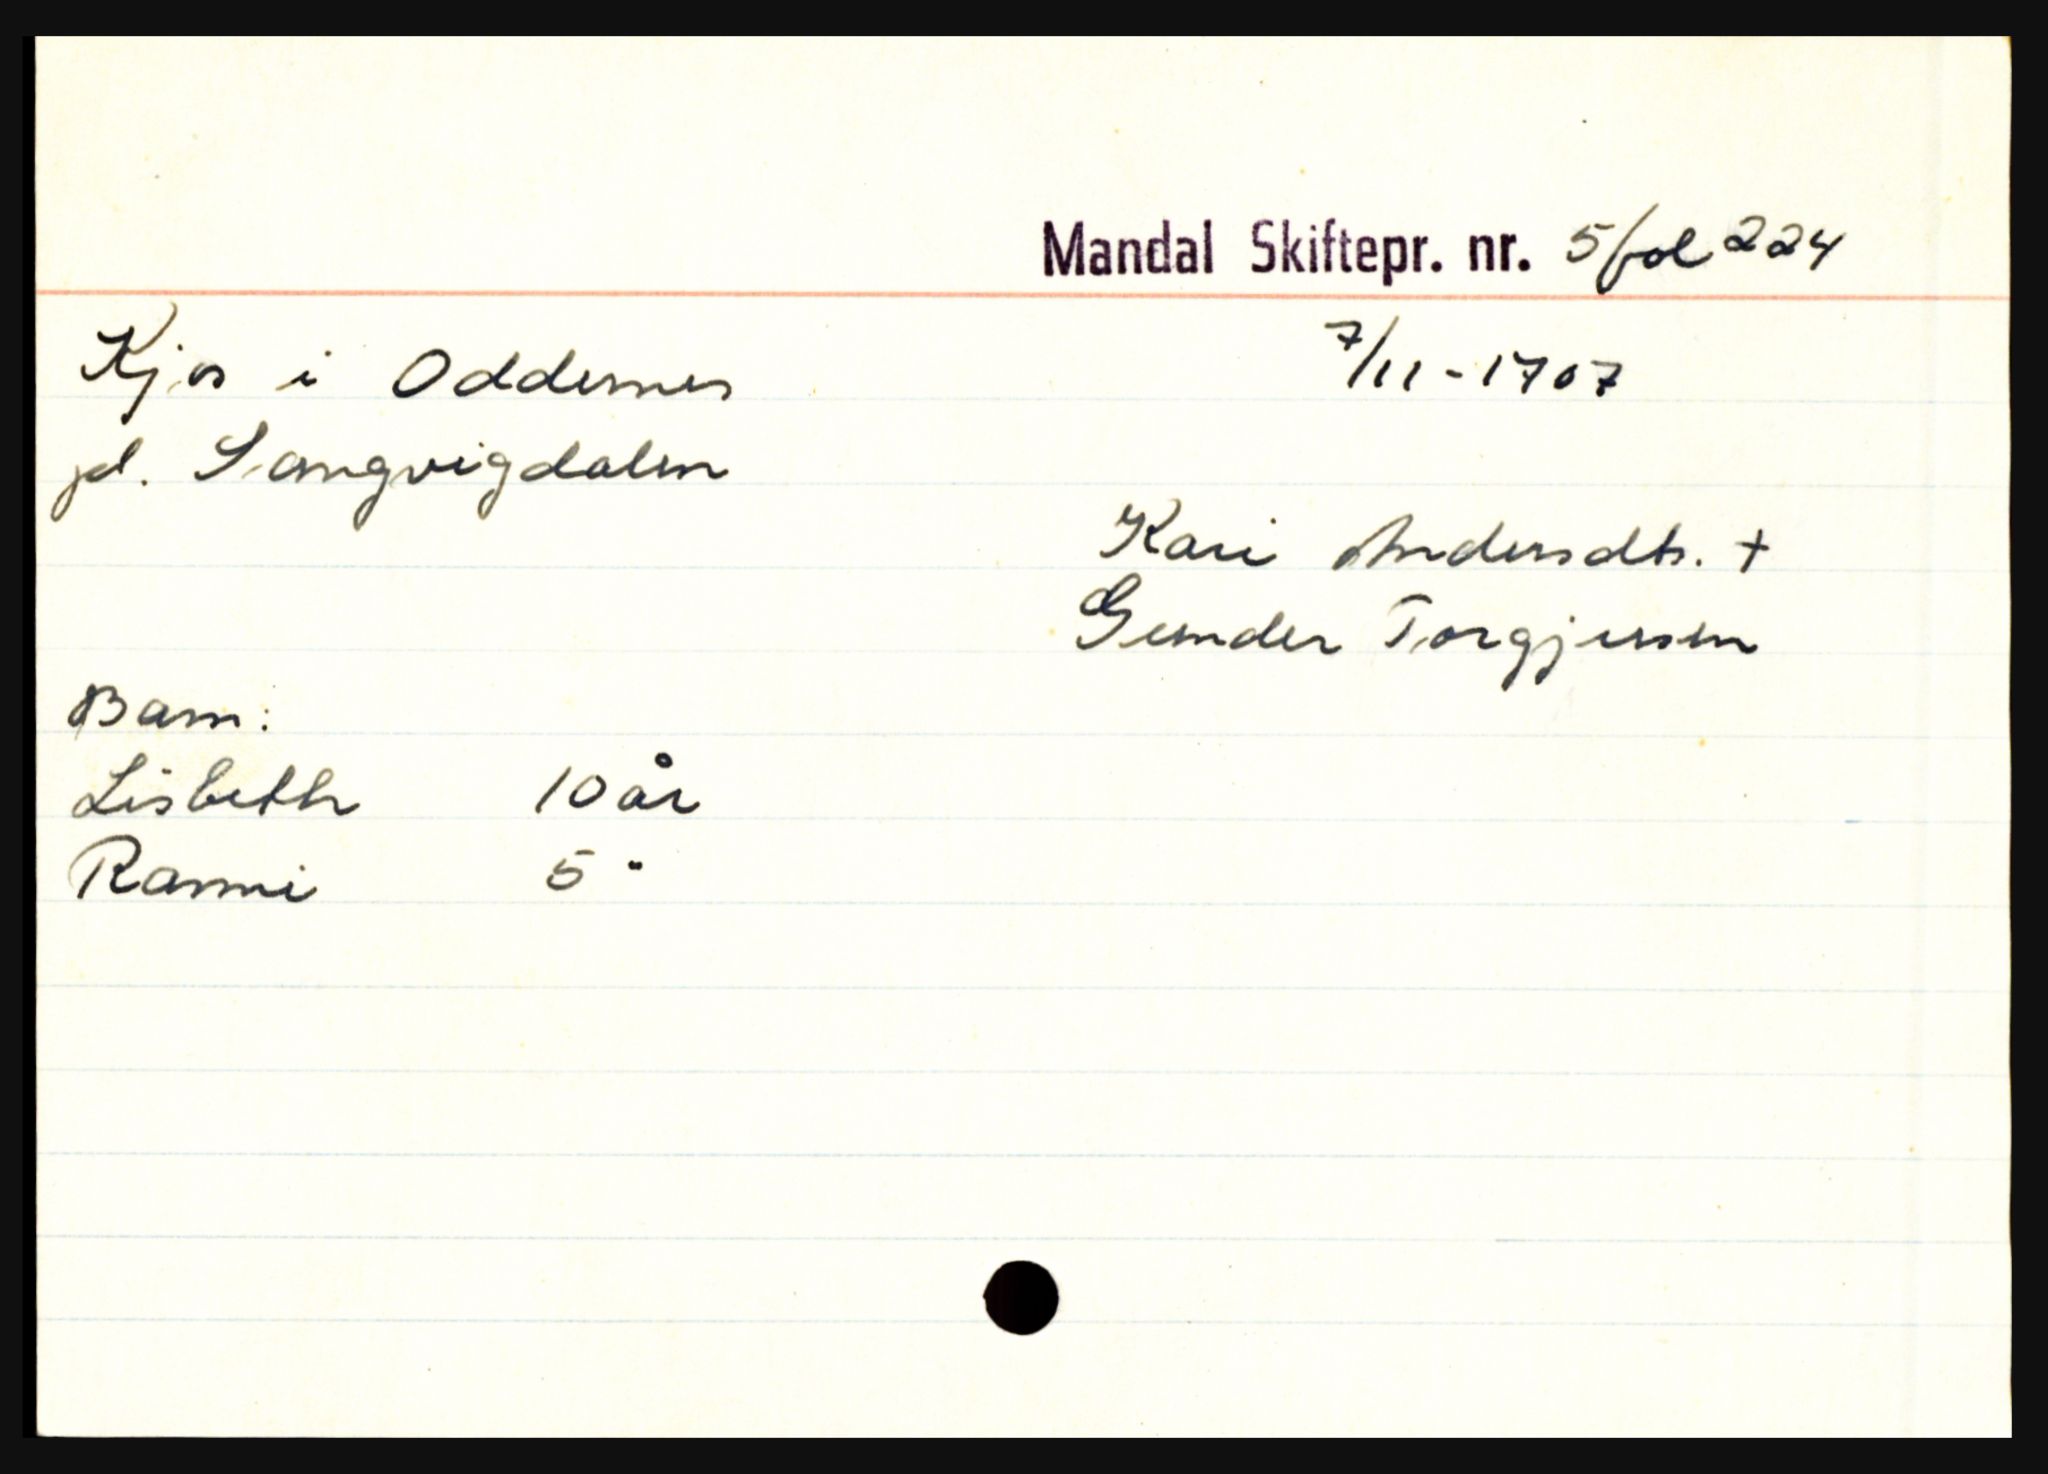 Mandal Skiftepr. nr. 5/fol 224
Kjos i Oddernes 7/11-1707
pl. Sangvigdalen
Kari Andersdtr. +
Gunder Torgjersen
Barn:
Lisbeth 10 år
Ranni 5 "